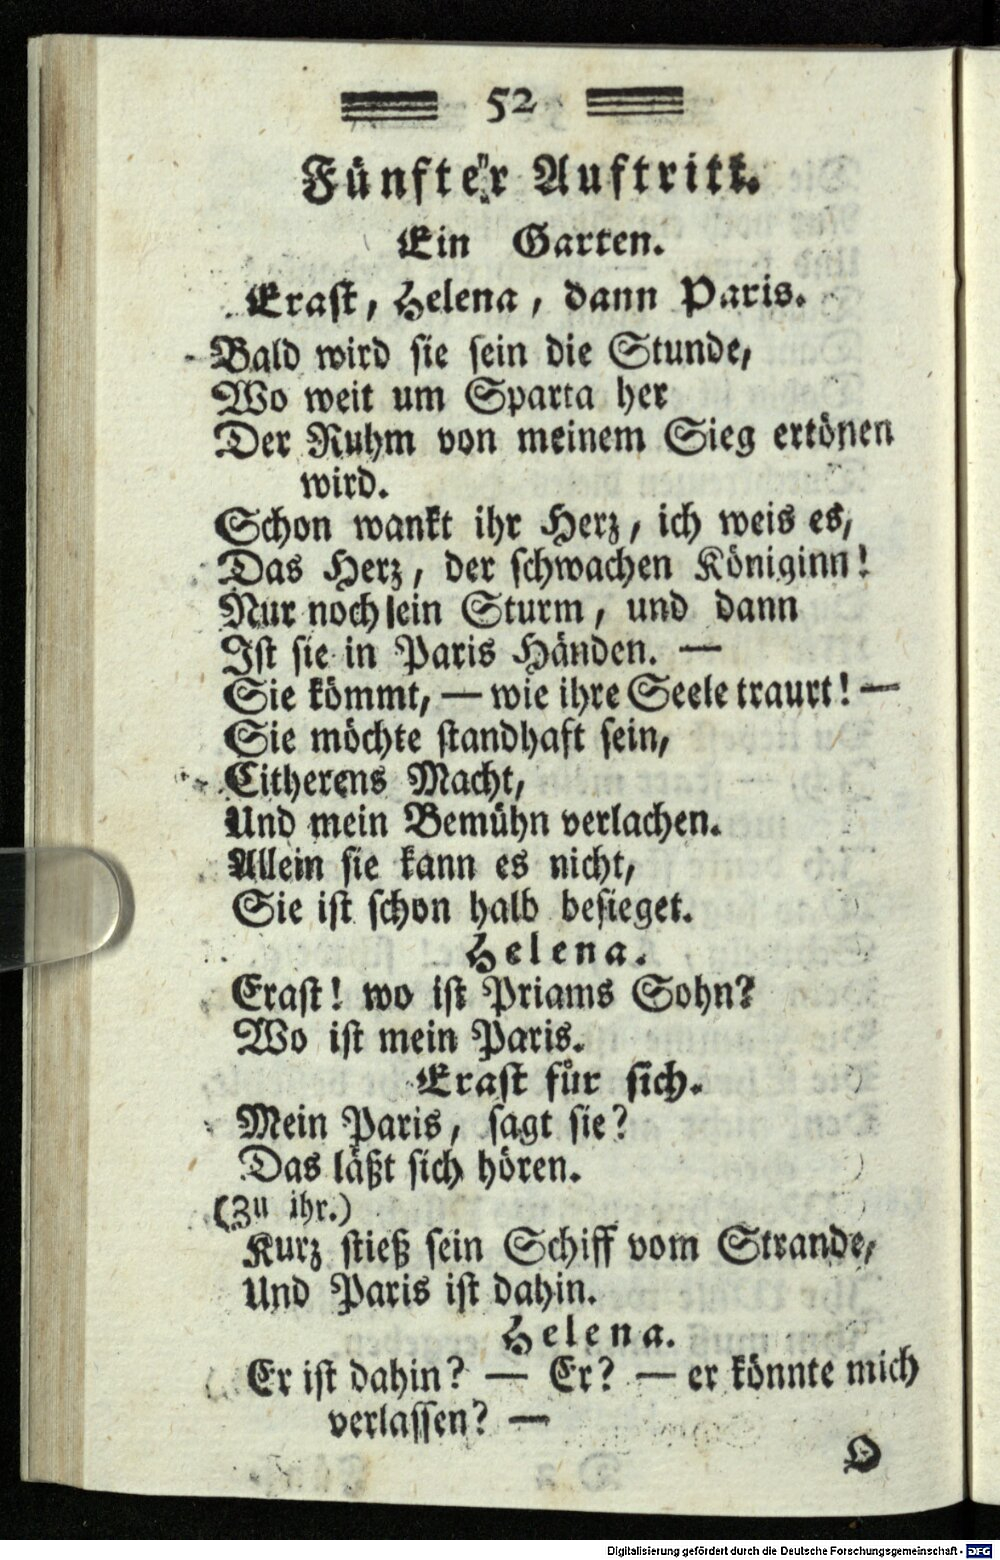 52
Fünfter Auftritt.
Ein Garten.
Erast, Helena, dann Paris.
Bald wird sie sein die Stunde,
Wo weit um Sparta her
Der Ruhm von meinem Sieg ertönen
wird.
Schon wankt ihr Herz, ich weis es,
Das Herz, der schwachen Königinn!
Nur noch ein Sturm, und dann
Ist sie in Paris Händen. —
Sie kömmt, — wie ihre Seele traurt! —
Sie möchte standhaft sein,
Citherens Macht,
Und mein Bemühn verlachen.
Allein sie kann es nicht,
Sie ist schon halb besieget.
Helena.
Erast! wo ist Priams Sohn?
Wo ist mein Paris.
Erast für sich.
Mein Paris, sagt sie?
Das läßt sich hören.
(Zu ihr.)
Kurz stieß sein Schiff vom Strande,
Und Paris ist dahin.
Helena.
Er ist dahin? — Er? — er könnte mich
verlassen? —
O
Digitalisierung gefördert durch die Deutsche Forschungsgemeinschaft - DFG